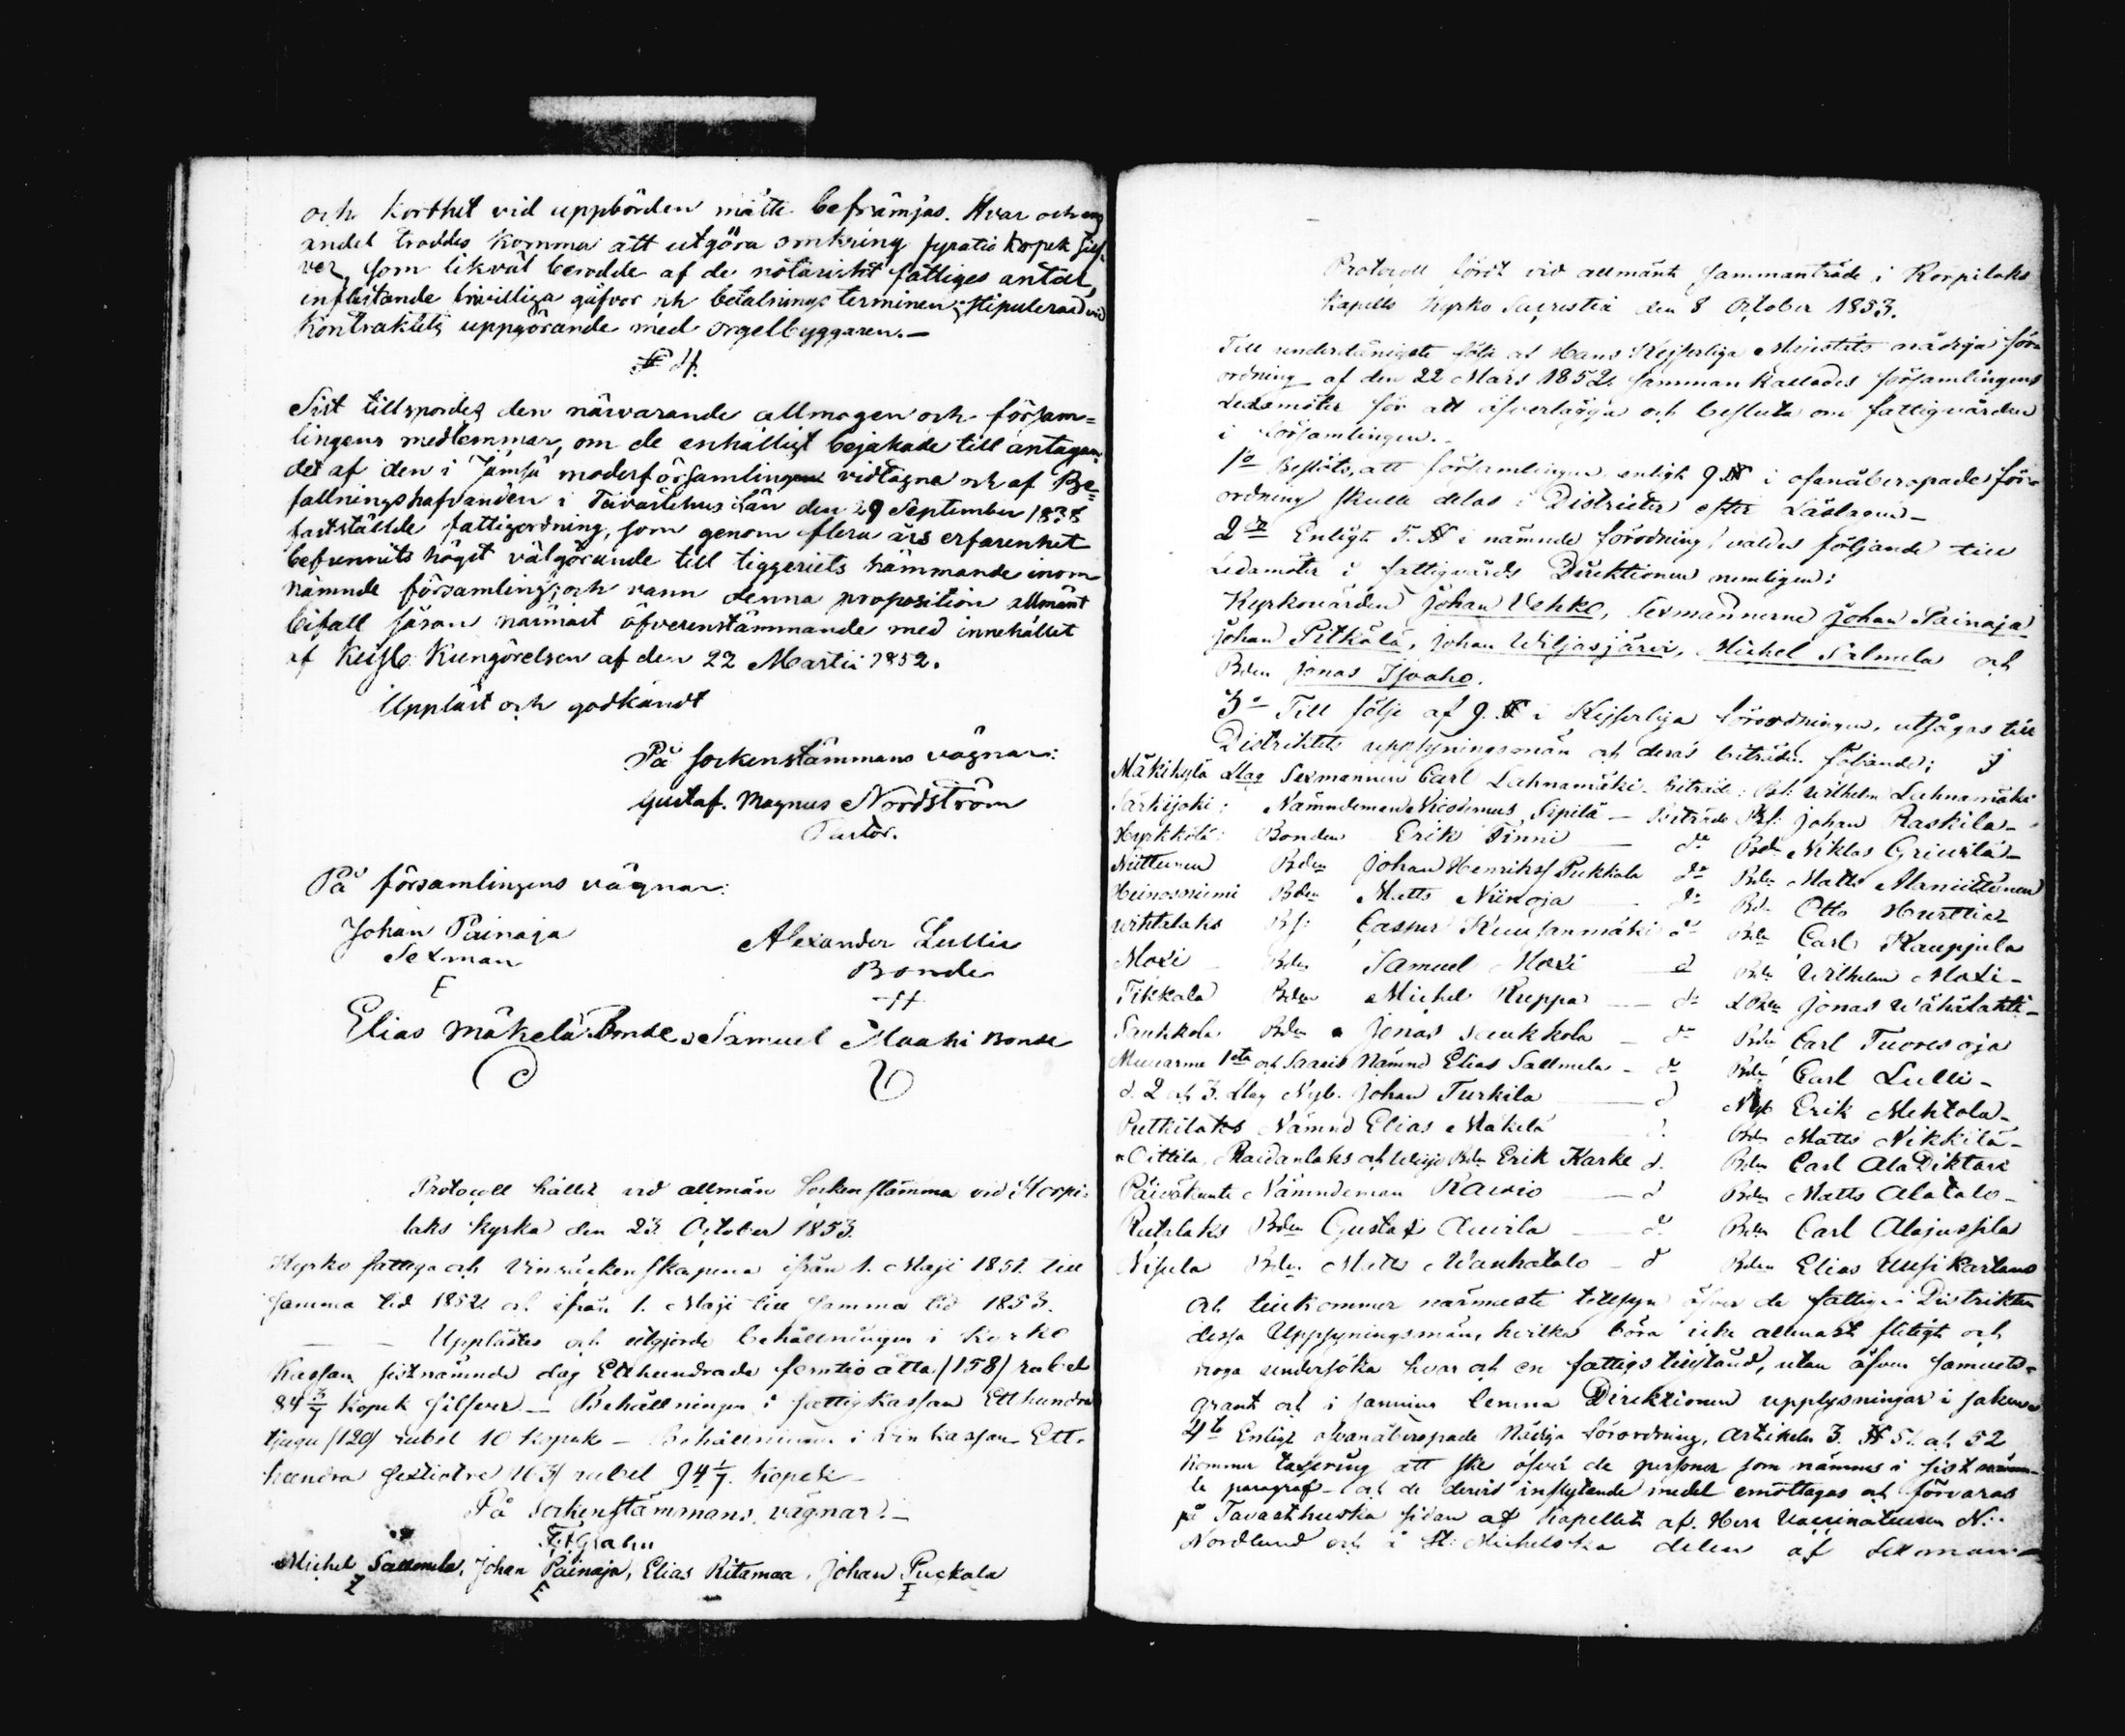 och korthet vid uppbörden måtte befrämjas. Hvar och en
andel troddes komma att utgöra omkring fyratio kopek silf-
ver, som likväl berodde af de notoriskt fattiges antal,
inflytande frivilliga gåfvor och betalnings terminen, stipulerad vid
Kontraktets uppgörande med orgelbyggaren.—
§ 4.
Sist tillspordes den närvarande allmogen och försam=
lingens medlemmar, om de enhälligt bejakade till antagan-
det af den i Jämsä moderförsamlingen vidtagna och af Be=
fallningshafvanden i Tavastehus Län den 29 September 1838
fastställde fattigordning, som genom flera års erfarenhet
befunnits högst välgörande till tiggeriets hämmande inom
nämnde församling; och vann denna proposition allmänt
bifall såsom närmast öfverenstämmande med innehållet
af Keis. Kungörelsen af den 22 Martii 1852.
Uppläst och godkändt
På sockenstämmans vägnar:
Gustaf Magnus Nordström
Pastor.
På församlingens vägnar:
Johan Painaja
Sexman
Alexander Lullie
Bonde
Elias Mäkelä Bonde, Samuel Maahi Bonde
Protocoll hållit vid allmän Sockenstämma vid Korpi-
laks kyrka den 23 October 1853.
Kyrko fattiga och Vinräckenskaperna ifrån 1. Maji 1851 till
samma tid 1852 och ifrån 1. Maji till samma tid 1853.
— — Upplästes och utgjorde behållningen i Kyrko
Kassan sistnämnde dag Etthundrade femtio åtta /158/ rubel
84 3/7 kopek silfver — Behållningen i fattigkassan Etthundra
tjugu /120/ rubel 10 kopek — Behållningen i Vin kassan Ett-
hundra sextiotre /163/ rubel 94 1/7 kopek —
På sockenstämmans vägnar:—
Michel Sallmela, Johan Painaja, Elias Ritamaa, Johan Puckala
Protocoll fördt vid allmänt sammanträde i Korpilaks
Kapells Kyrko Sacristia den 8 October 1853.
Till underdånigste följe af Hans Kejserliga Majestäts nådiga för-
ordning af den 22 Mars 1852 sammankallades församlingens
Ledamöter för att öfverlägga och besluta om fattigvården
i församlingen.
1o Beslöts, att församlingen enligt 9 § i ofanåberopade för-
ordning skulle delas i Districter efter Läslagen—
2do Enligt 5. § i nämnde förordning valdes följande till
Ledamöter i fattigvårds Direktionen nemligen:
Kyrkovärden Johan Vehko, Sexmännerne Johan Painaja
Johan Pitkälä, Johan Wiljasjärvi, Michel Salmela och
Bden Jonas Isoaho.
3o Till följe af 9. § i Kejserliga förordningen, utsågos till
Distriktets uppsyningsmän och deras biträden följande;
Mäkikylä Slag Sexmannen Carl Lahnamäki - Biträde: Wilhelm Lahnamäki
Särkijoki: Nämndeman Nicodemus Sipilä — Biträde Johan Raskila—
Hyrkkölä: Bonden Erik Sinni — do Bden Niklas
Niittunen Bden Johan Henrikss Pukkala do Bden Matts Alaniittunen
Heinosniemi Bden Matts Niinoja — do Bden Otto Hurttia
Wihtalaks Casper Kuusanmäki do Bden Carl Kauppila
Moxi Bden Samuel Moxi d Bden Wilhelm Moxi—
Tikkala Bden Michel Ruppa — do Jonas Wähälahti—
Saukkola Bden Jonas Saukkola — do Bden Carl Tuoresoja
Muurame 1sta och Saaris Nämnd Elias Sallmela — do Bden Carl Lulli—
d. 2 och 3. Slag Nyb. Johan Turkila — d Nyb Erik Mehtola—
Putkilaks Nämnd Elias Mäkelä d. Bden Matts Nikkilä—
Oittila, och Bden Erik Karke d. Bden Carl Ala Diktari
Päiväkunta Nämndeman Rawio — d Bden Matts Alatalo—
Rutalaks Bden Gustaf Auvila — d. Bden Carl Alajussila
Nisula Bden Matts Wanhatalo — d Bden Elias Uusikartano
och tillkommer närmeste tillsyn öfver de fattige i Distrikten
dessa Uppsyningsmän, hvilka böra icke allenast flitigt och
noga undersöka hvar och en fattigs tillstånd, utan äfven samvets-
grant och i sanning lemna Direktionen upplysningar i saken
4to Enligt ofvanåberopade Nådiga förordning, artikeln 3. § 51 och 52
kommer taxering att ske öfver de personer som nämnes i sist nämn-
de paragraf — och de dervid inflytande medel emottagas och förvaras
på Tavasthuska sidan af Kapellet af Herr Vaccinateuren N.
Nordlund och å St: Michelska delen af Sexman—